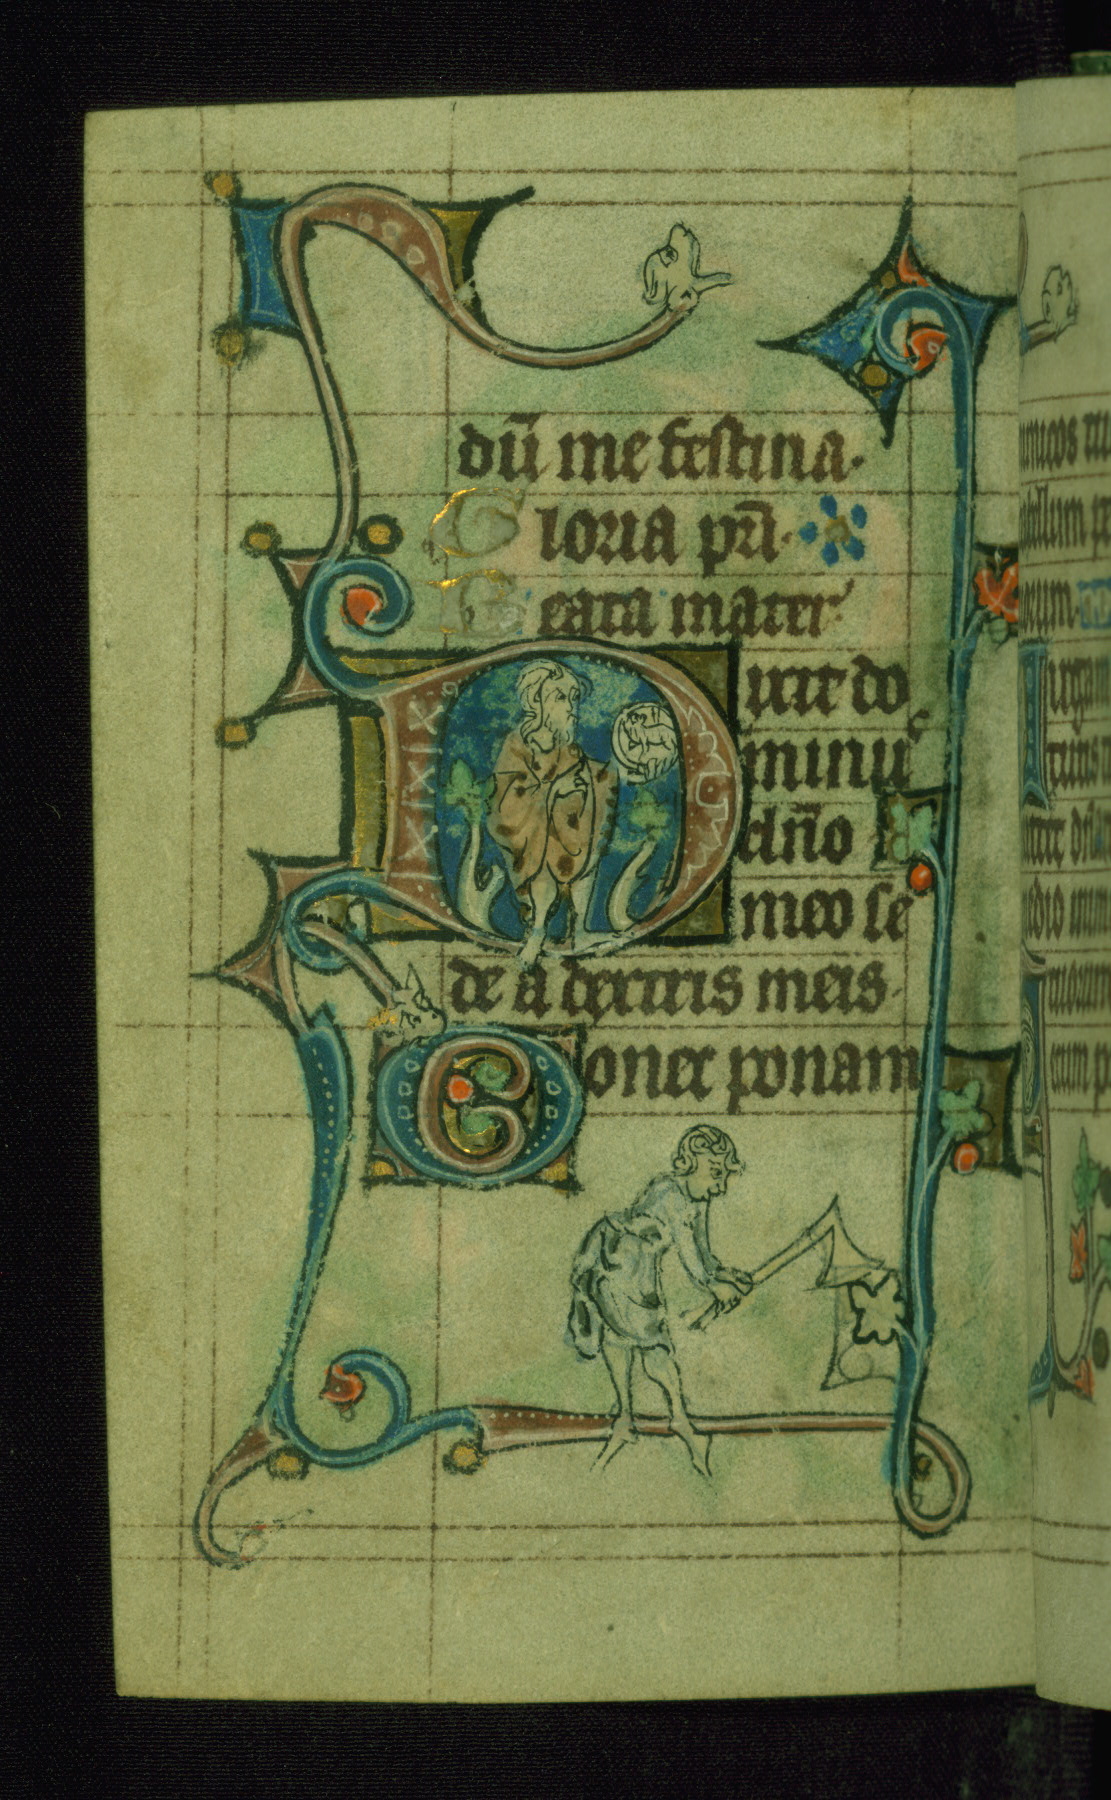 dū me festina.
Gloria pr̄i.
Beata mater
Dixit do
minuˢ
dn̄o
meo se
de a dextris meis.
Donec ponam